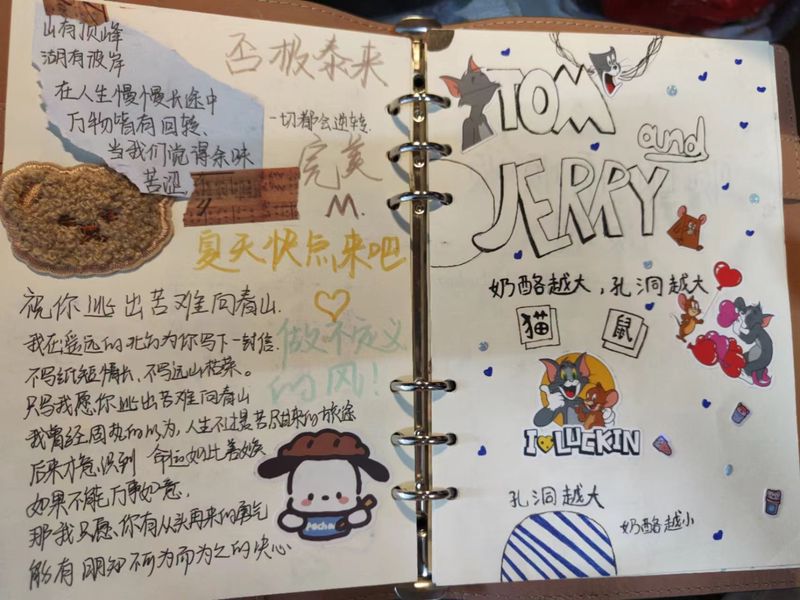 山有顶峰
湖有彼岸
在人生慢慢长途中
万物皆有回转
当我们觉得余味
苦涩
否极泰来
一切都会逆转
完美
M.
夏天快点来吧
祝你逃出苦难向青山
我在遥远的北方为你写下一封信
不写纸短情长，不写远山枯荣。
只写我愿你逃出苦难向青山
我曾经固执的以为，人生不过是苦尽甘来的旅途
后来才意识到 命运如此善变
如果不能万事如意，
那我只愿，你有从头再来的勇气
能有明知不可为而为之的决心
做不定义
的风！
Pocha
TOM
and
JERRY
奶酪越大，孔洞越大
猫
鼠
I LUCKIN
孔洞越大
奶酪越小